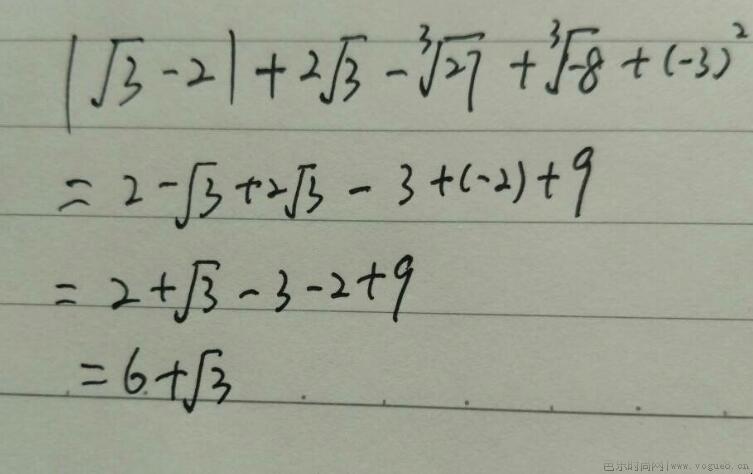 |√3 - 2| + 2√3 - ∛27 + ∛-8 + (-3)²
= 2 - √3 + 2√3 - 3 + (-2) + 9
= 2 + √3 - 3 - 2 + 9
= 6 + √3
芭乐时尚网|www.vogueo.cn